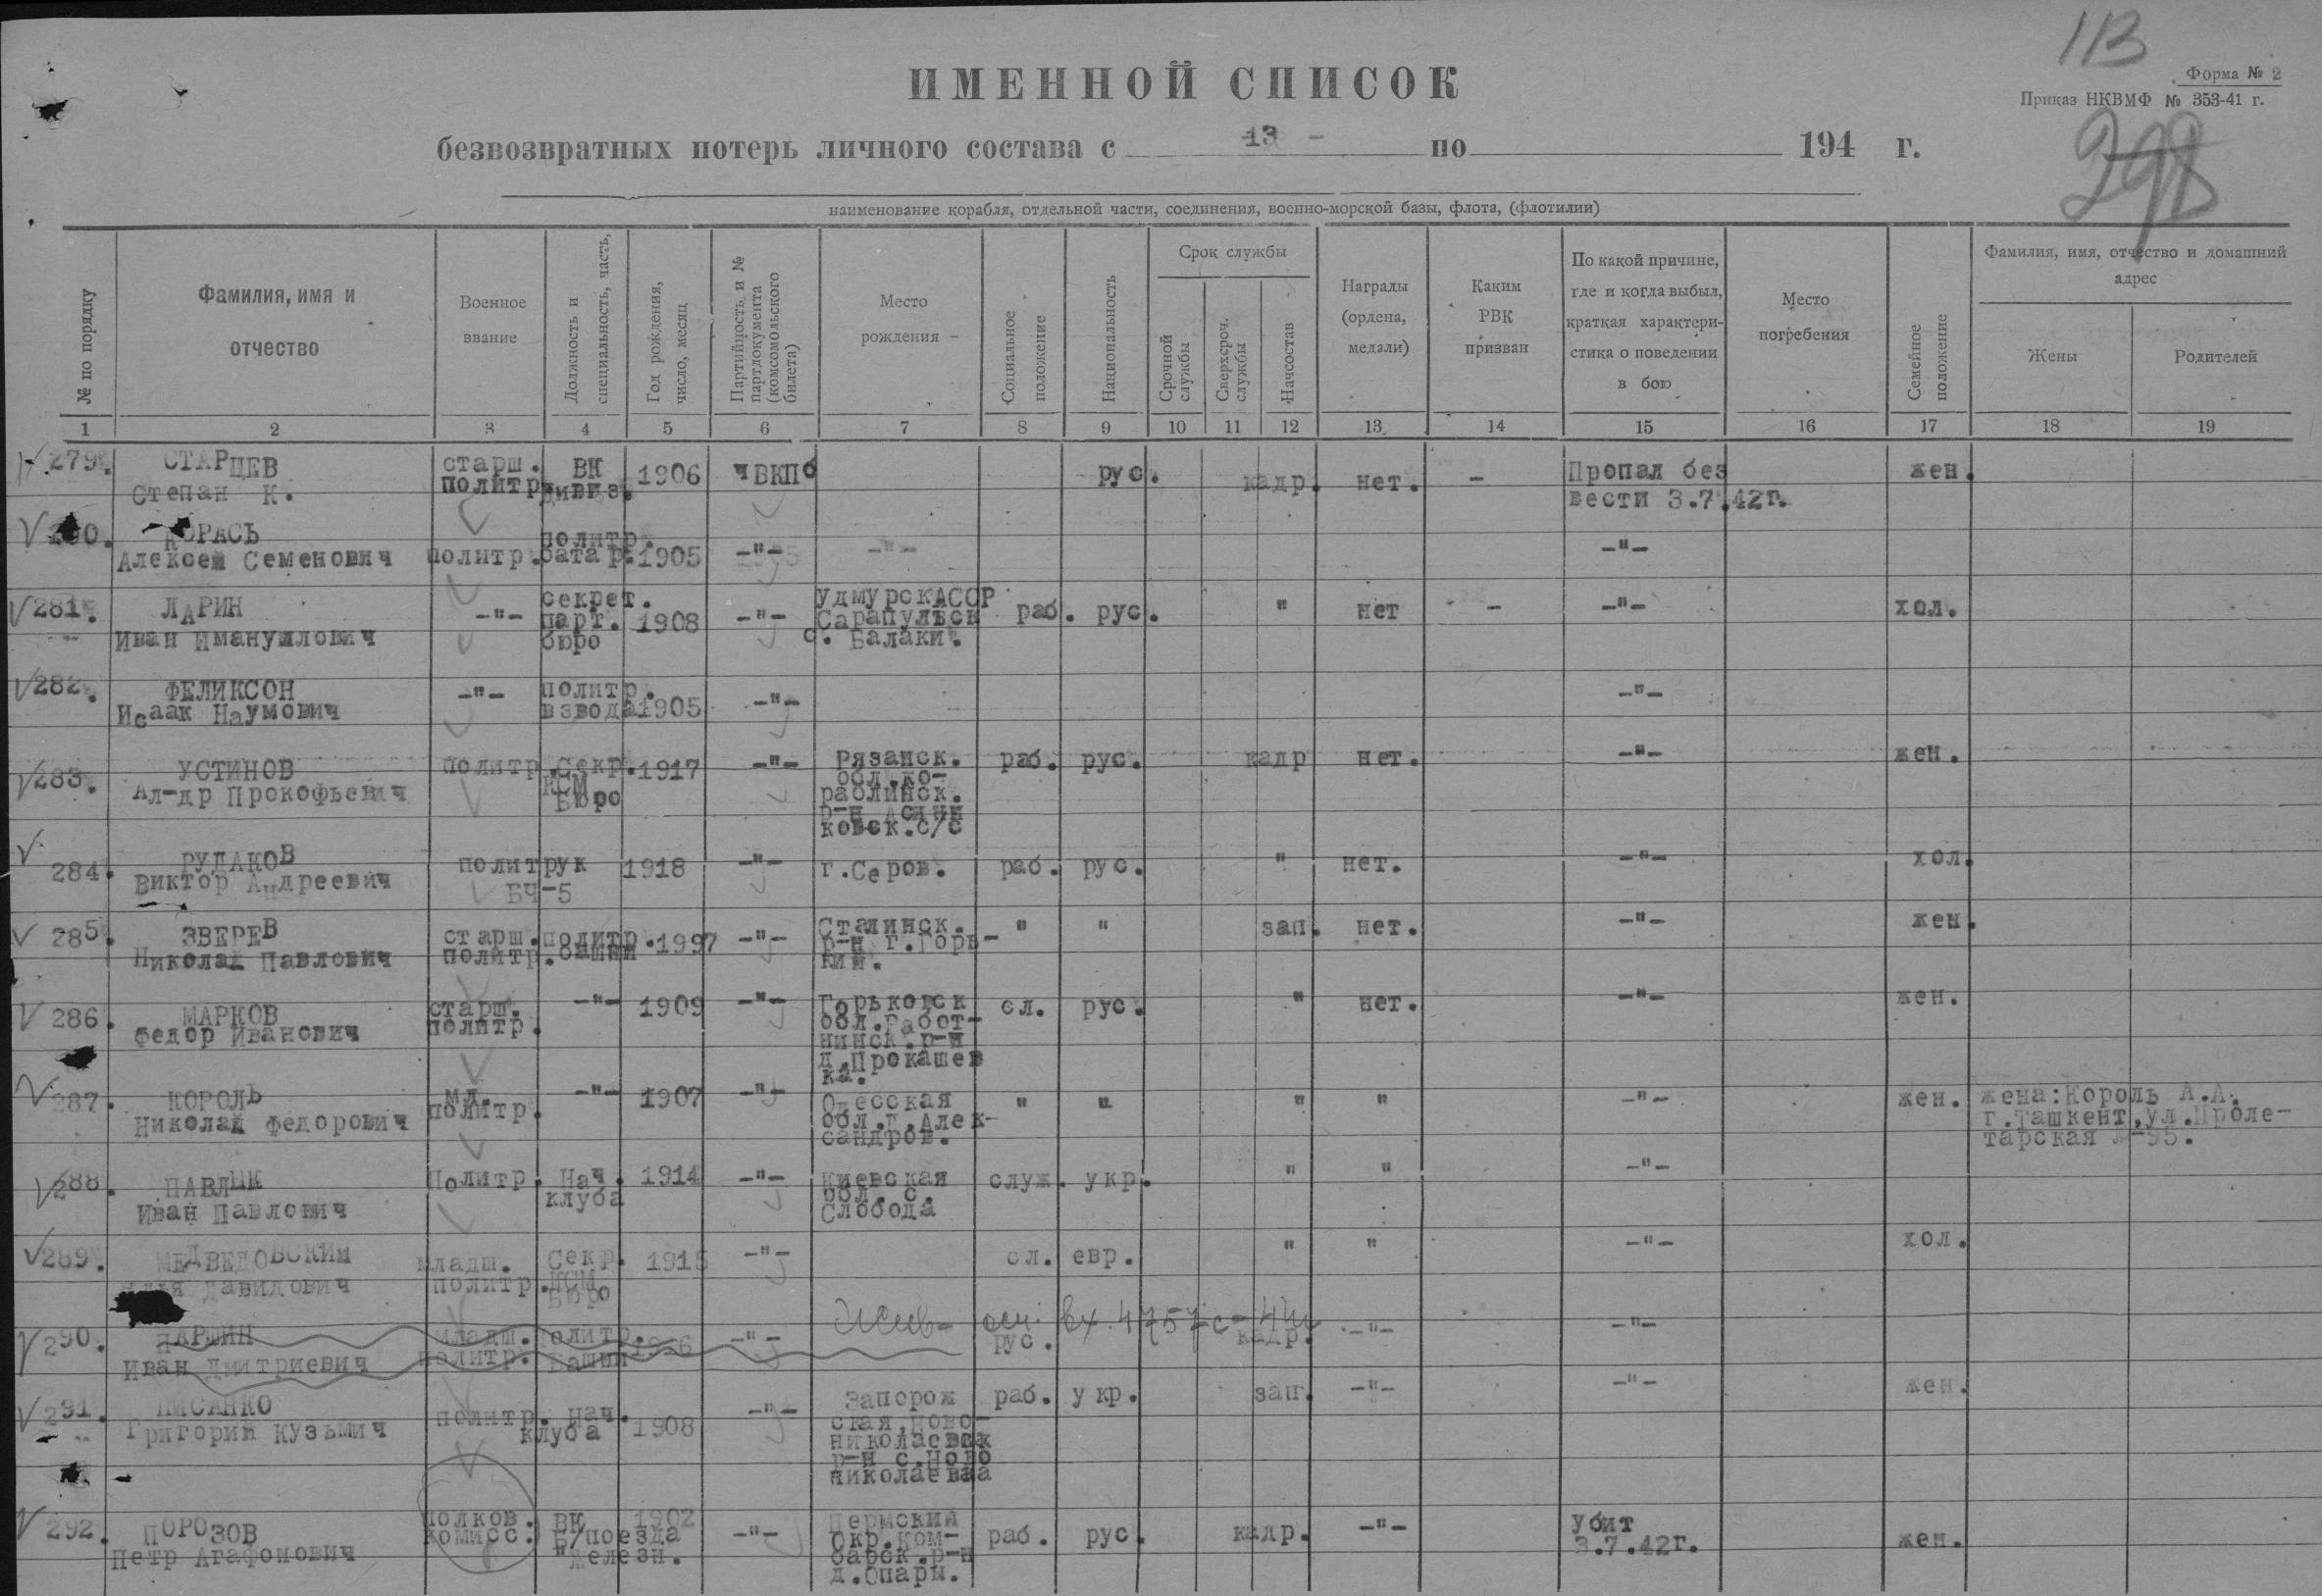 113
ИМЕННОЙ СПИСОК
Форма № 2
Приказ НКВМФ № 353-41 г.
298
безвозвратных потерь личного состава с 13 - по 194 г.
наименование корабля, отдельной части, соединения, военно-морской базы, флота, (флотилии)
№ по порядку
Фамилия, имя и отчество
Военное звание
Должность и специальность, часть,
Год рождения, число, месяц
Партийность и № партдокумента (комсомольского билета)
Место рождения
Социальное положение
Национальность
Срок службы
Срочной службы
Сверхсроч. службы
Начсостав
Награды (ордена, медали)
Каким РВК призван
По какой причине, где и когда выбыл, краткая характеристика о поведении в бою
Место погребения
Семейное положение
Фамилия, имя, отчество и домашний адрес
Жены
Родителей
1 2 3 4 5 6 7 8 9 10 11 12 13 14 15 16 17 18 19
279. СТАРЦЕВ старш. ВК 1906 чВКПб рус. кадр. нет. - Пропал без жен.
Степан К. политр. дивиз. вести 3.7.42г.
280. КОРАСЬ политр.
Алексей Семенович политр. батар. 1905 -"- -"- -"-
281. ЛАРИН -"- секрет. 1908 -"- УдмурскАССР раб. рус. " нет - -"- хол.
Иван Имануилович парт. Сарапульск
бюро с. Балаки.
282. ФЕЛИКСОН -"- политр. -"- -"-
Исаак Наумович взвода 1905
283. УСТИНОВ политр. Секр. 1917 -"- Рязанск. раб. рус. кадр нет. -"- жен.
Ал-др Прокофьевич КСМ обл.ко-
Бюро раблинск.
р-н
ковск.с/с
284. РУДАКОВ политрук 1918 -"- г.Серов. раб. рус. " нет. -"- хол.
Виктор Андреевич БЧ-5
285. ЗВЕРЕВ старш. политр. 1997 -"- Сталинск. " " зап. нет. -"- жен.
Николай Павлович политр. башни р-н г.Горь-
кий.
286. МАРКОВ старш. -"- 1909 -"- Горьковск сл. рус. " нет. -"- жен.
Федор Иванович политр. обл.Работ-
нинск.р-н
д.Прокашев
ка.
287. КОРОЛЬ мл. -"- 1907 -"- Одесская " " " " -"- жен. жена:Король А.А.
Николай Федорович политр. обл.д.Алек- г.Ташкент,ул.Проле-
сандров. тарская №-95.
288. ПАВЛЫК Политр. Нач. 1914 -"- Киевская служ. укр. " " -"-
Иван Павлович клуба обл. с.
Слобода
289. МЕДВЕДОВСКИЙ младш. Секр. 1915 -"- сл. евр. " " -"- хол.
Илья Давидович политр. КСМ
Бюро
вх. 4757с-44
290. ПАРШИН младш. политр. -"- рус. кадр. -"- -"-
Иван Дмитриевич политр. Башни
291. ПИСАНКО политр. нач. 1908 -"- Запорож раб. укр. зап. -"- -"- жен.
Григорий Кузьмич клуба ская,Ново-
николаевск
р-н с.Ново
николаевка
292. ПОРОЗОВ полков. ВК 1902 -"- Пермский раб. рус. кадр. -"- убит жен.
Петр Агафонович комисс. Б/поезда окр.Ком- 3.7.42г.
"Железн. барск.р-н
д.Опары.